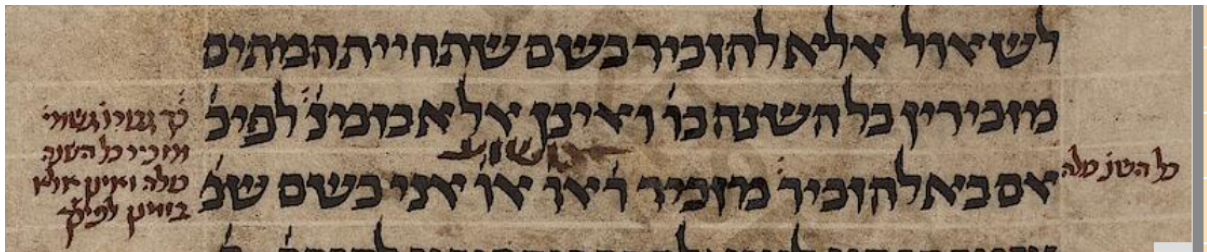 לשאול אלא להזכיר כשם שתחיית המתים
מזכירין כל השנה כו' ואינן אלא בזמנ' לפיכ'
אם בא להזכיר מזכיר ר' או או' אני כשם שמ
כל השנ' מלה
כך גבורו' גשמי'
מזכיר כל השנה
מלה ואינן אלא
בזמנן לפיכך